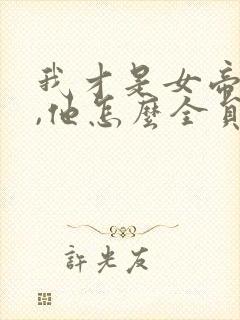 我才是女帝
,他怎麼全員
許光友